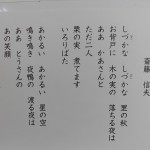 斎藤 信夫
しづかな しづかな 里の秋
お背戸に 木の実の 落ちる夜は
ああ かあさんと
ただ二人
栗の実 煮てます
いろりばた
あかるい あかるい 星の空
鳴き鳴き 夜鴨の 渡る夜は
ああ とうさんの
あの笑顔